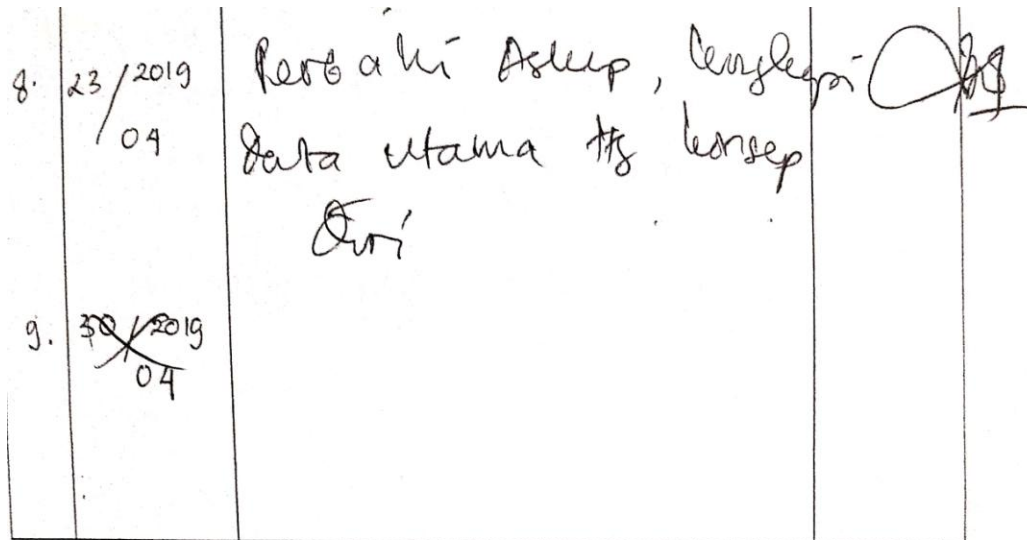 8. 23/2019 Perbaiki Askep, lengkapi
04 data utama ttg konsep
diri
9. 30/2019
04